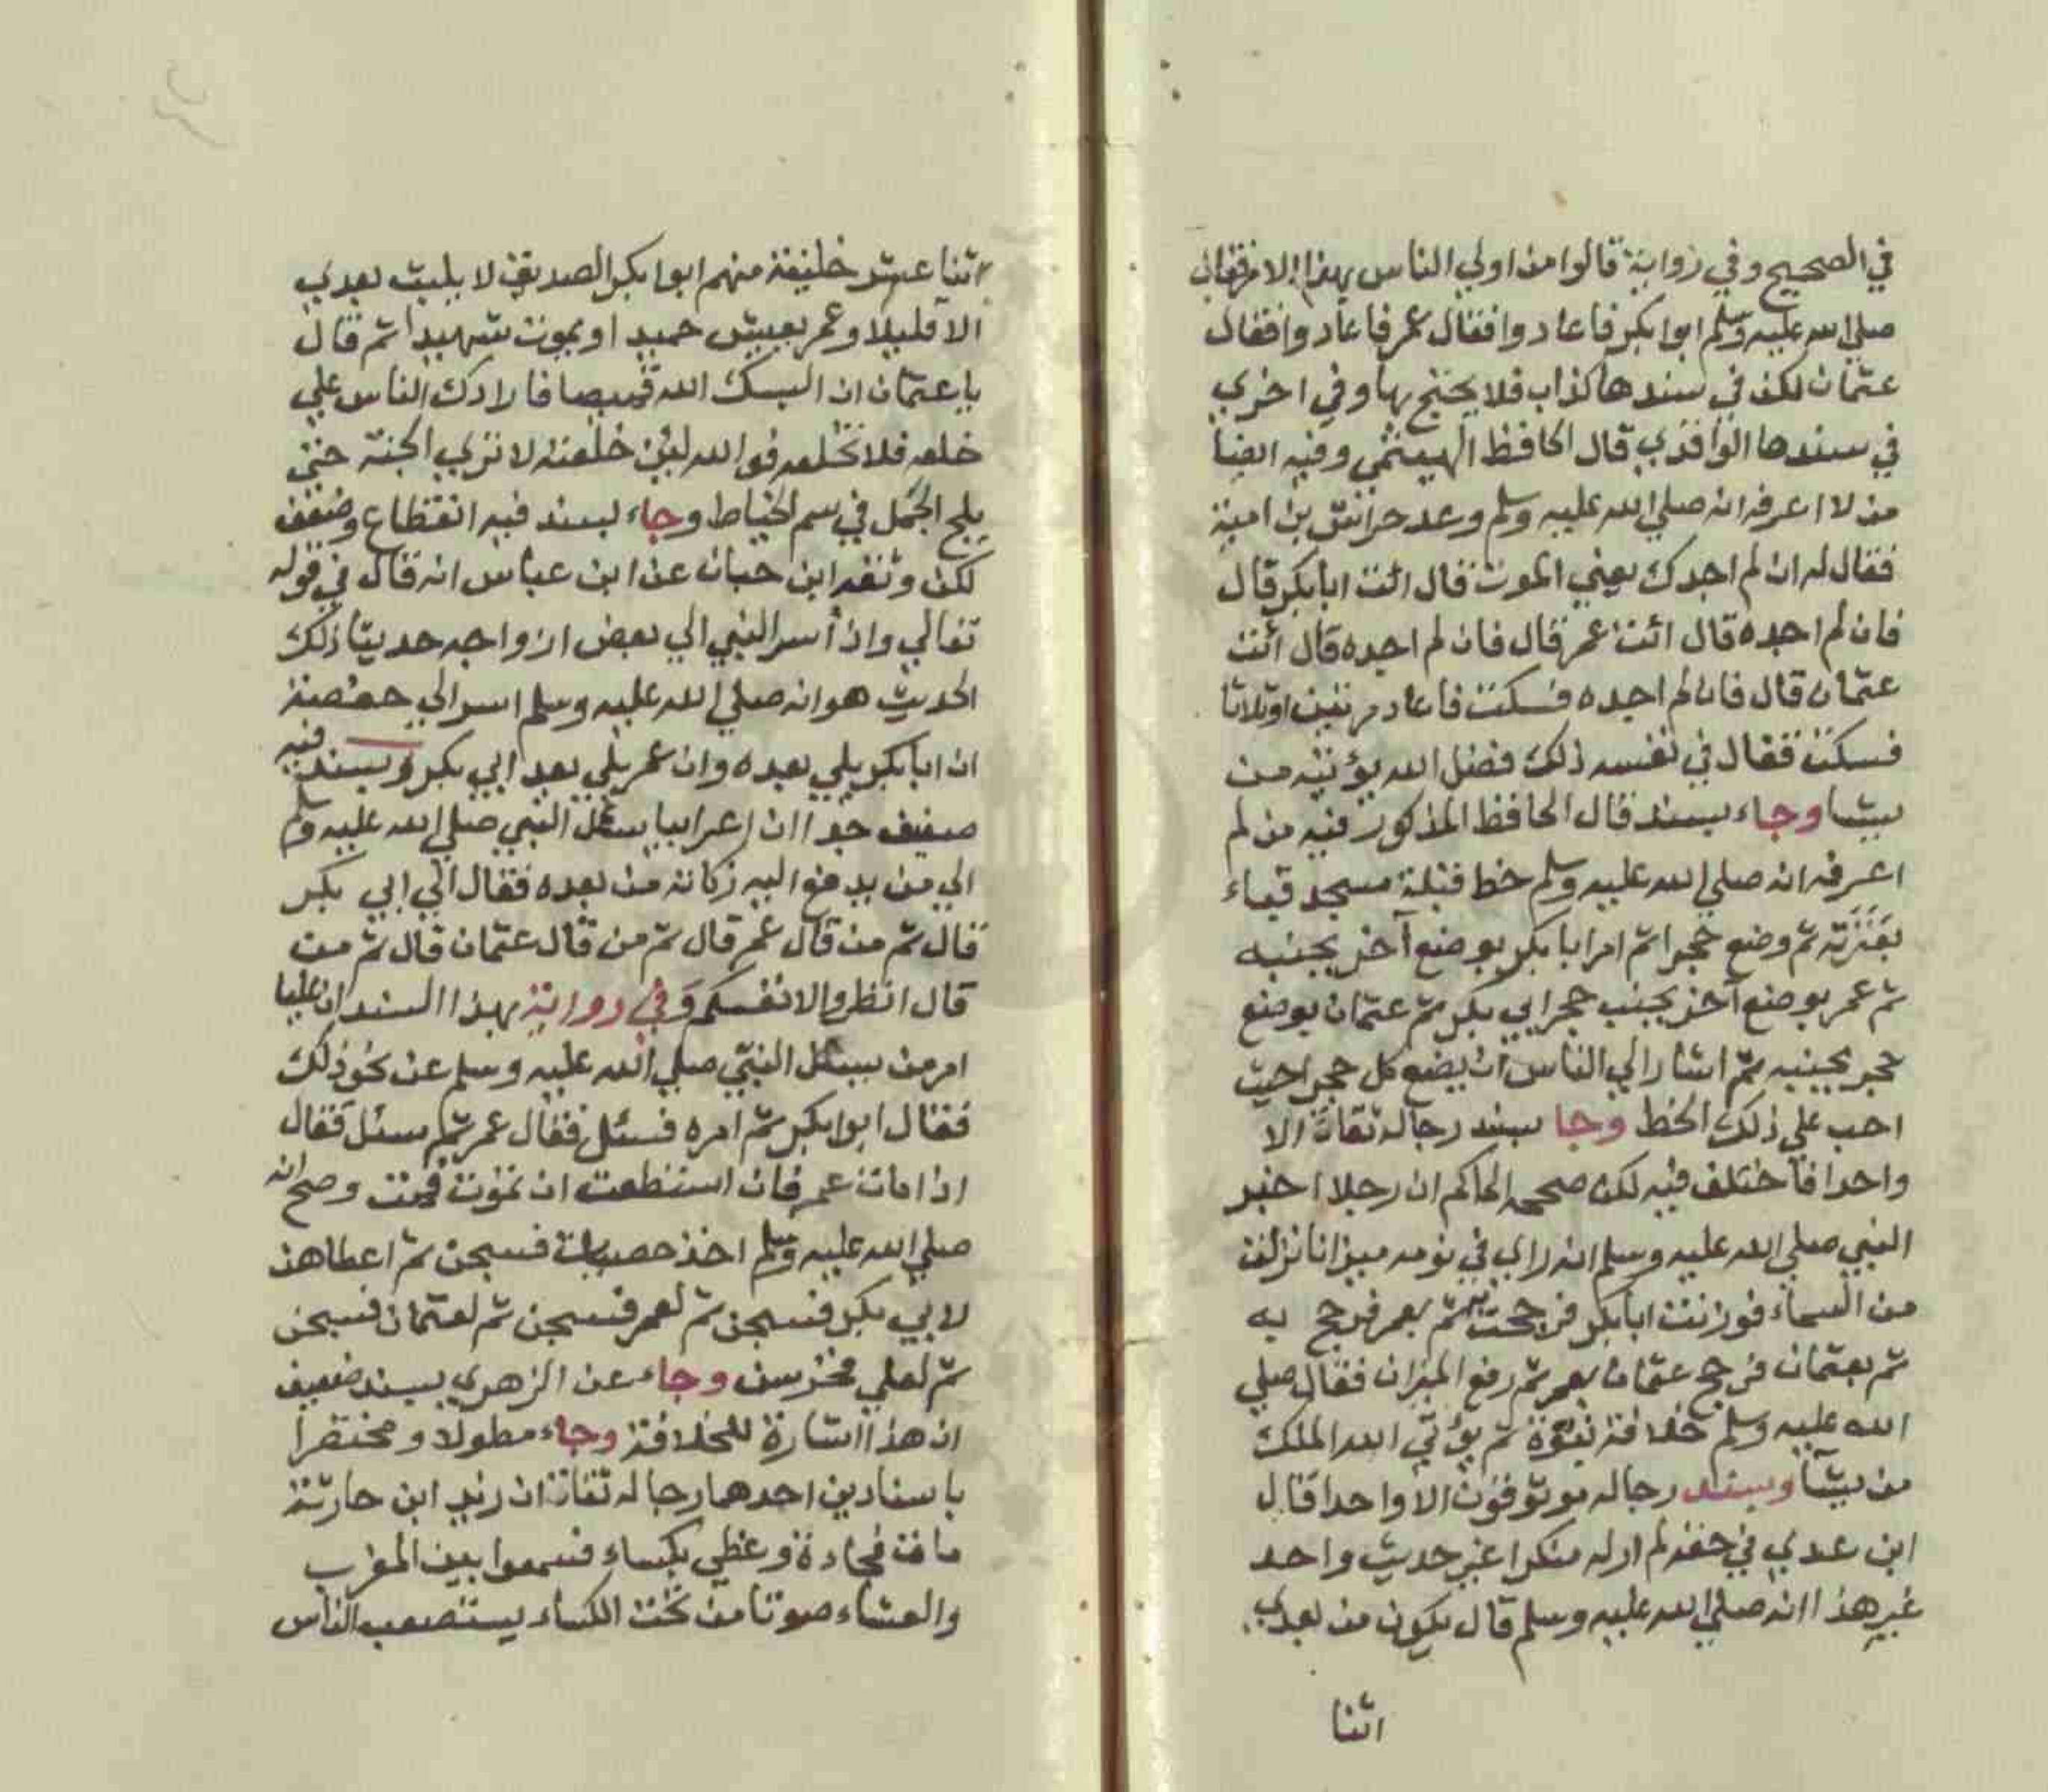 في الصحيح وفي رواية قالوا من اولي الناس بهذا الامر فقال
صلي الله عليه وسلم ابوا بكر فاعادوا فقال عمر فاعادوا فقال
عثمان لكن في سندها كذاب فلا يحتج بها وفي اخري
في سندها الواقدي قال الحافظ الهيتمي وفيه ايضا
من لا اعرفه انه صلي الله عليه وسلم وعد حراش بن امية
فقال له ان لم اجدك يعني الموت قال ائت ابا بكر قال
فان لم اجده قال ائت عمر قال فان لم اجده قال ائت
عثمان قال فان لم اجده فسكت فاعاد مرتين او ثلاثا
فسكت فقال في نفسه ذلك فضل الله يؤتيه من
يشا وجاء بسند قال الحافظ المذكور فيه من لم
اعرفه انه صلي الله عليه وسلم خط قبلة مسجد قباء
بعنزته ثم وضع حجرا ثم امر ابا بكر بوضع آخر بجنبه
ثم عمر بوضع آخر بجنب حجر ابي بكر ثم عثمان بوضع
حجر بجنبه ثم اشار الي الناس ان يضع كل حجر احيث
احب علي ذلك الخط وجا بسند رجاله ثقات الا
واحدا فاختلف فيه لكن صححه الحاكم ان رجلا اخبر
النبي صلي الله عليه وسلم انه راي في نومه ميزانا نزلت
من السماء فوزنت ابا بكر فرجحت ثم بعمر فرجح به
ثم بعثمان فرجح عثمان بعمر ثم رفع الميزان فقال صلي
الله عليه وسلم خلافة نبوة ثم يؤتي الله الملك
من يشآ وبسند رجاله موثوقون الا واحدا قال
ابن عدي في حقه لم ار له منكرا غير حديث واحد
غير هذا انه صلي الله عليه وسلم قال يكون من بعدي
اثنا
اثنا عشر خليفة منهم ابوا بكر الصديق لا يلبث بعدي
الا قليلا وعمر يعيش حميدا ويموت شهيدا ثم قال
يا عثمان ان البسك الله قميصا فارادك الناس علي
خلعه فلا تخلعه فوالله لئن خلعته لا تري الجنة حتي
يلج الجمل في سم الخياط وجاء بسند فيه انقطاع وضعف
لكن وثقه ابن حبان عن ابن عباس انه قال في قوله
تعالي واذ أسر النبي الي بعض ازواجه حديثا ذلك
الحديث هو انه صلي الله عليه وسلم اسر الي حفصة
ان ابا بكر يلي بعده وان عمر يلي بعد ابي بكر وبسند فيه
ضعيف جدا ان اعرابيا سئل النبي صلي الله عليه وسلم
الي من يدفع اليه زكاته من بعده فقال الي ابي بكر
قال ثم من قال عمر قال ثم من قال عثمان قال ثم من
قال انظروا لانفسكم وفي رواية بهذا السند ان عليا
امر من يسئل النبي صلي الله عليه وسلم عن نحو ذلك
فقال ابوا بكر ثم امره فسئل فقال عمر ثم سئل فقال
اذا مات عمر فان استطعت ان تموت فمت وصح انه
صلي الله عليه وسلم اخذ حصيات فسبحن ثم اعطاهن
لابي بكر فسبحن ثم لعمر فسبحن ثم لعثمان فسبحن
ثم لعلي فخرسن وجاء عن الزهري بسند ضعيف
ان هذا اشارة للخلافة وجاء مطولا ومختصرا
باسنادين احدهما رجاله ثقات ان زيد ابن حارثة
مات فجادة وغطي بكساء فسمعوا بين المغرب
والعشاء صوتا من تحت الكساء يستنصب الناس